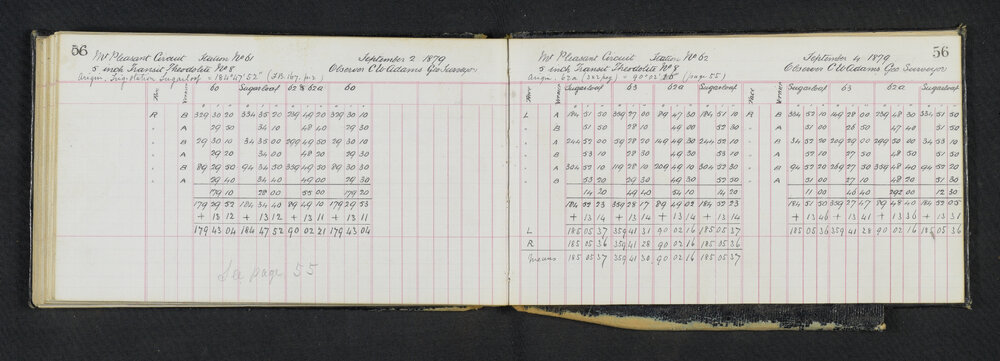 56
Mt Pleasant Circuit Station No 61 September 2 1879
5 inch Transit Theodolite No 8 Observer C W Adams Geo Surveyor
Origin, Trig station Sugarloaf = 184° 47' 52"
Face Vernier 60 Sugarloaf 62 & 62a 60
R B 329 30 20 334 35 20 239 49 20 329 30 10
" A 29 50 34 10 48 40 29 30
" B 29 30 10 34 35 00 299 49 20 29 30 10
" A 29 20 34 00 48 20 29 30
" B 89 29 50 94 34 50 359 49 50 89 30 30
" A 29 40 34 40 49 00 29 30
179 10 28 00 55 00 179 20
179 29 52 184 34 40 89 49 10 179 29 53
+ 13 12 + 13 12 + 13 11 + 13 11
179 43 04 184 47 52 90 02 21 179 43 04
See page 55
56
Mt Pleasant Circuit Station No 62 September 4 1879
5 inch Transit Theodolite No 8 Observer C W Adams Geo Surveyor
Origin 62a = 90° 02' (page 55)
Face Vernier Sugarloaf 63 62a Sugarloaf Face Vernier Sugarloaf 63 62a Sugarloaf
L A 184 51 50 359 27 00 89 47 30 184 51 10 R B 334 52 10 149 28 00 239 48 30 334 51 50
" B 51 50 28 10 49 00 52 30 " A 51 00 26 50 47 40 51 00
" A 244 52 00 59 28 20 149 49 30 244 52 30 " B 34 52 20 209 29 00 299 49 50 34 52 30
" B 53 10 28 30 49 30 53 10 " A 52 10 27 50 48 50 51 50
" A 304 52 10 119 28 10 209 49 10 304 52 30 " B 94 52 20 269 27 50 359 48 40 94 52 20
" B 53 20 29 30 49 30 52 30 " A 51 00 27 10 48 20 51 30
14 20 49 40 54 10 14 20 11 00 46 40 292 00 12 30
184 52 23 359 28 17 89 49 02 184 52 23 184 51 50 359 27 47 89 48 40 184 52 05
+ 13 14 + 13 14 + 13 14 + 13 14 + 13 46 + 13 41 + 13 36 + 13 31
L 185 05 37 359 41 31 90 02 16 185 05 37 185 05 36 359 41 28 90 02 16 185 05 36
R 185 05 36 359 41 28 90 02 16 185 05 36
Means 185 05 37 359 41 30 90 02 16 185 05 37